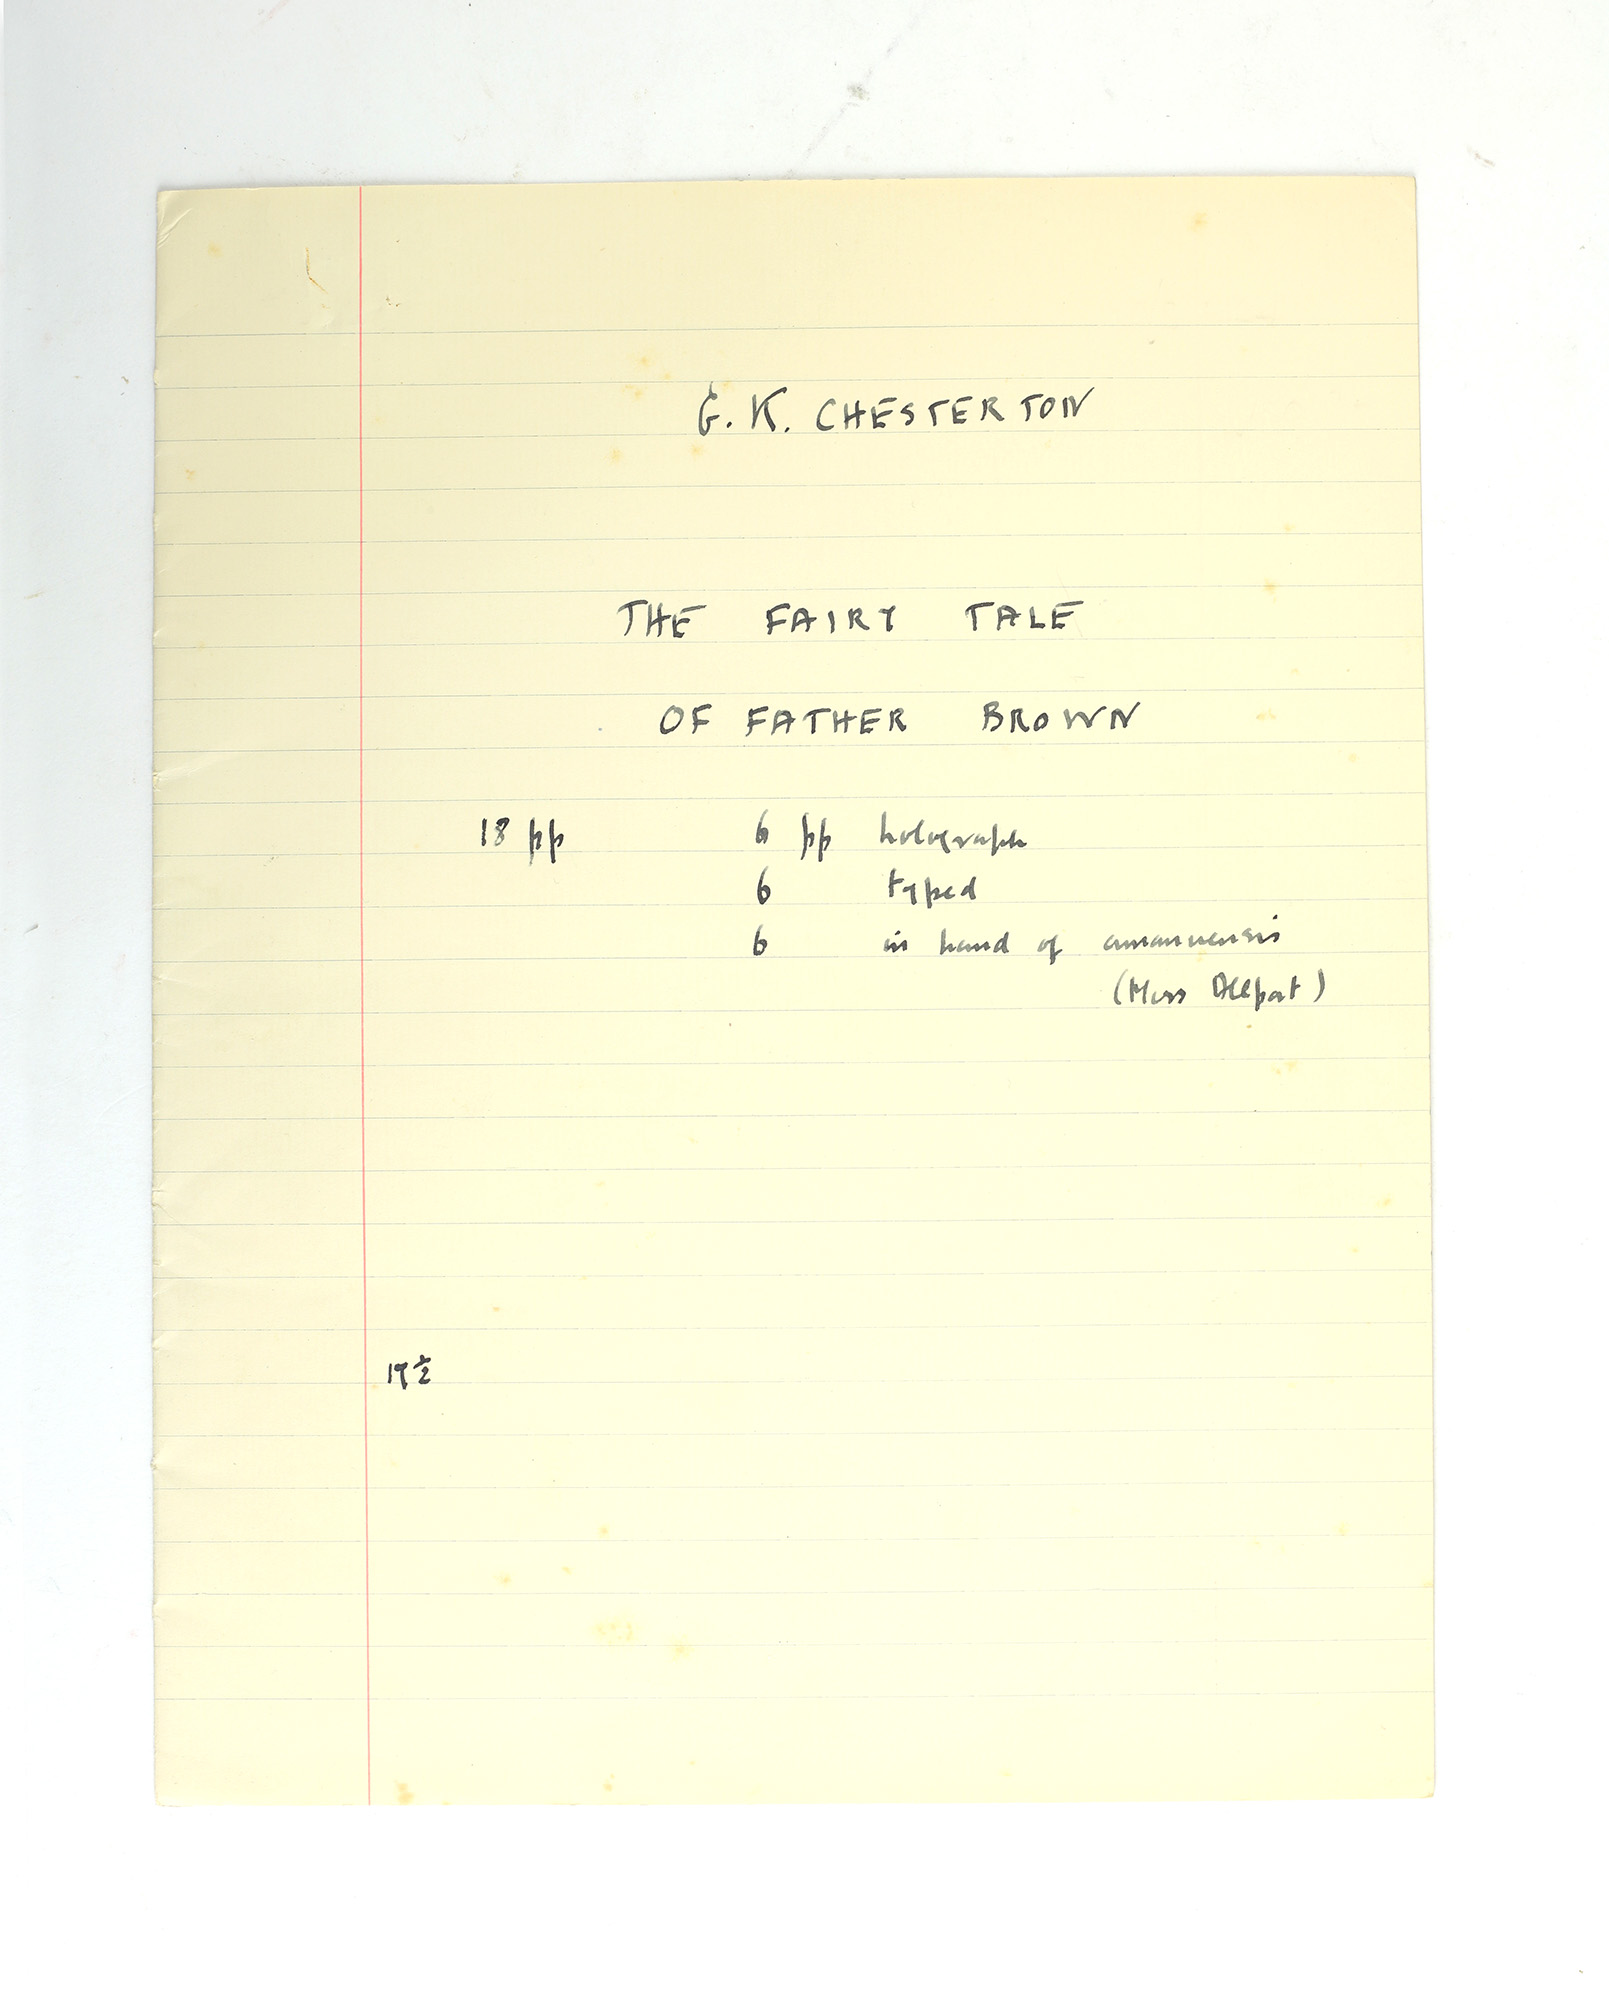 G. K. CHESTERTON
THE FAIRY TALE
OF FATHER BROWN
18 pp 6 pp holograph
6 typed
6 in hand of amanuensis
(Miss Allport)
19 ½